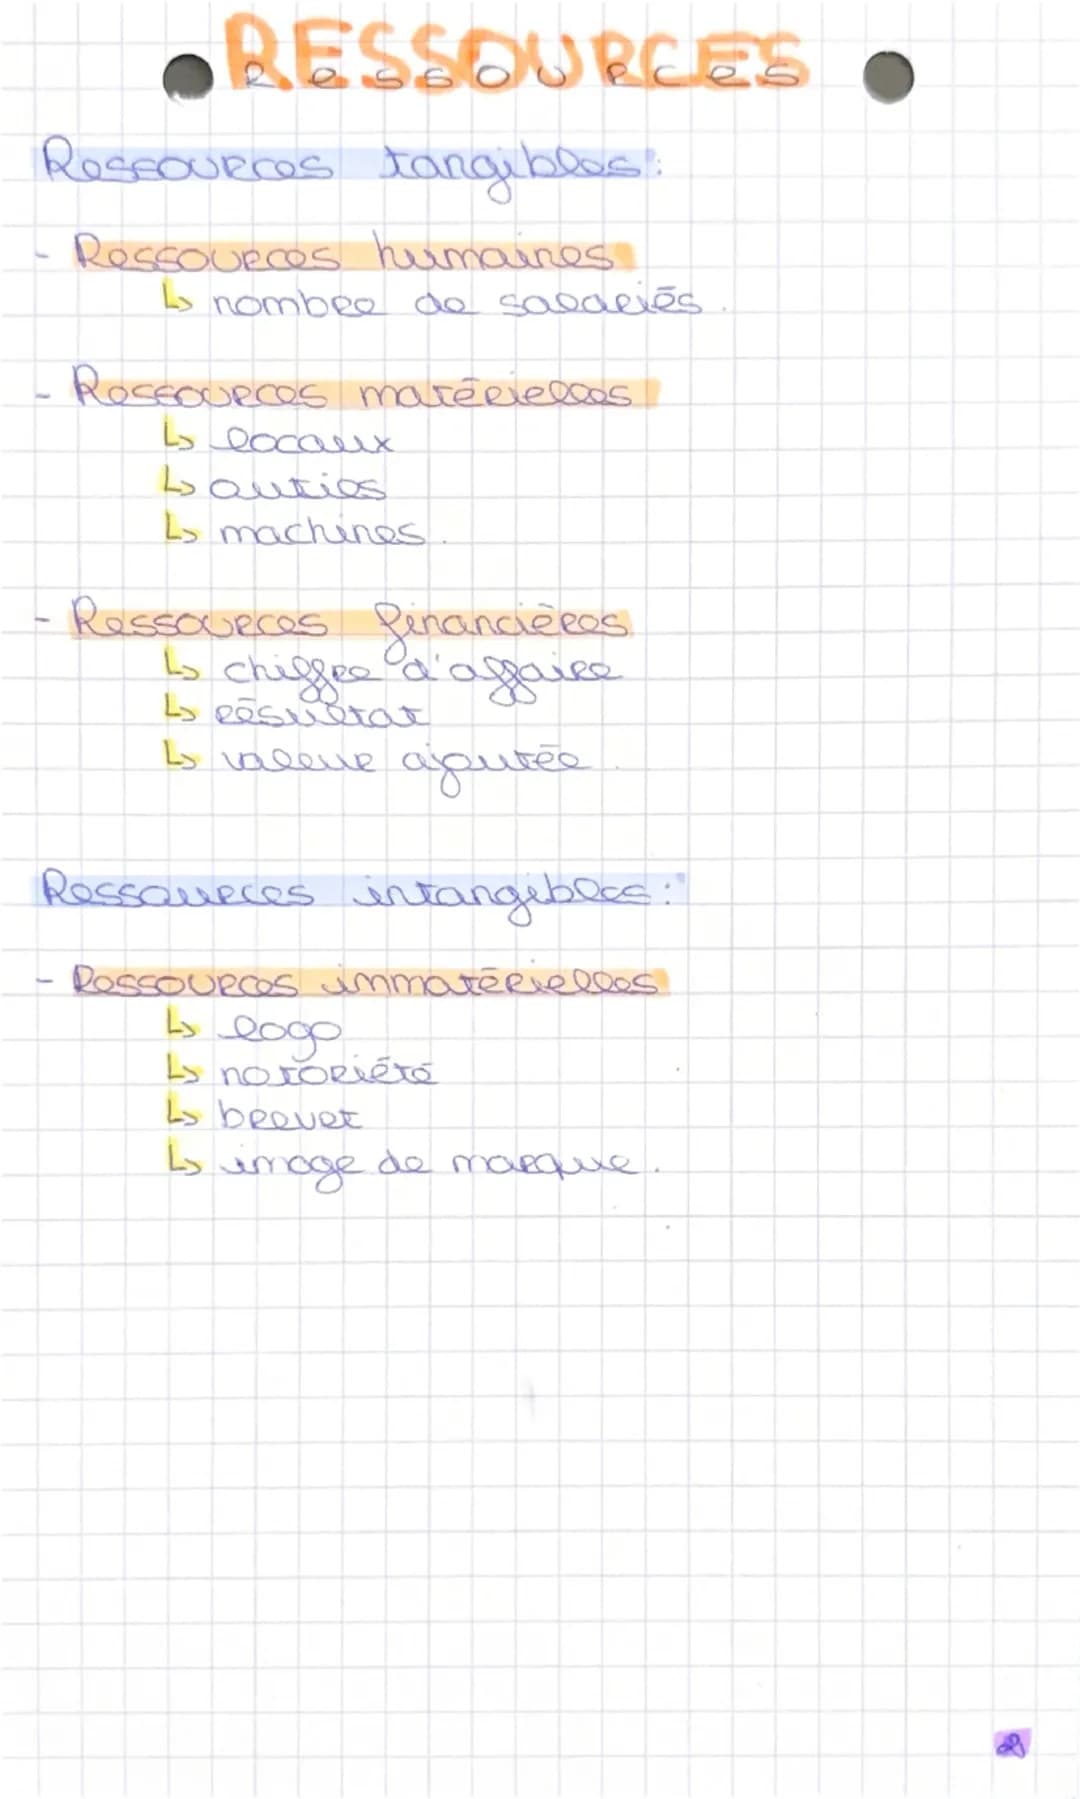 RESSOURCES
Ressources
Ressources tangibles :
- Ressources humaines
↳ nombre de salariés.
- Ressources matérielles
↳ locaux
↳ outils
↳ machines.
- Ressources financières
↳ chiffre d'affaire
↳ résultat
↳ valeur ajoutée.
Ressources intangibles :
- Ressources immatérielles
↳ logo
↳ notoriété
↳ brevet
↳ image de marque.